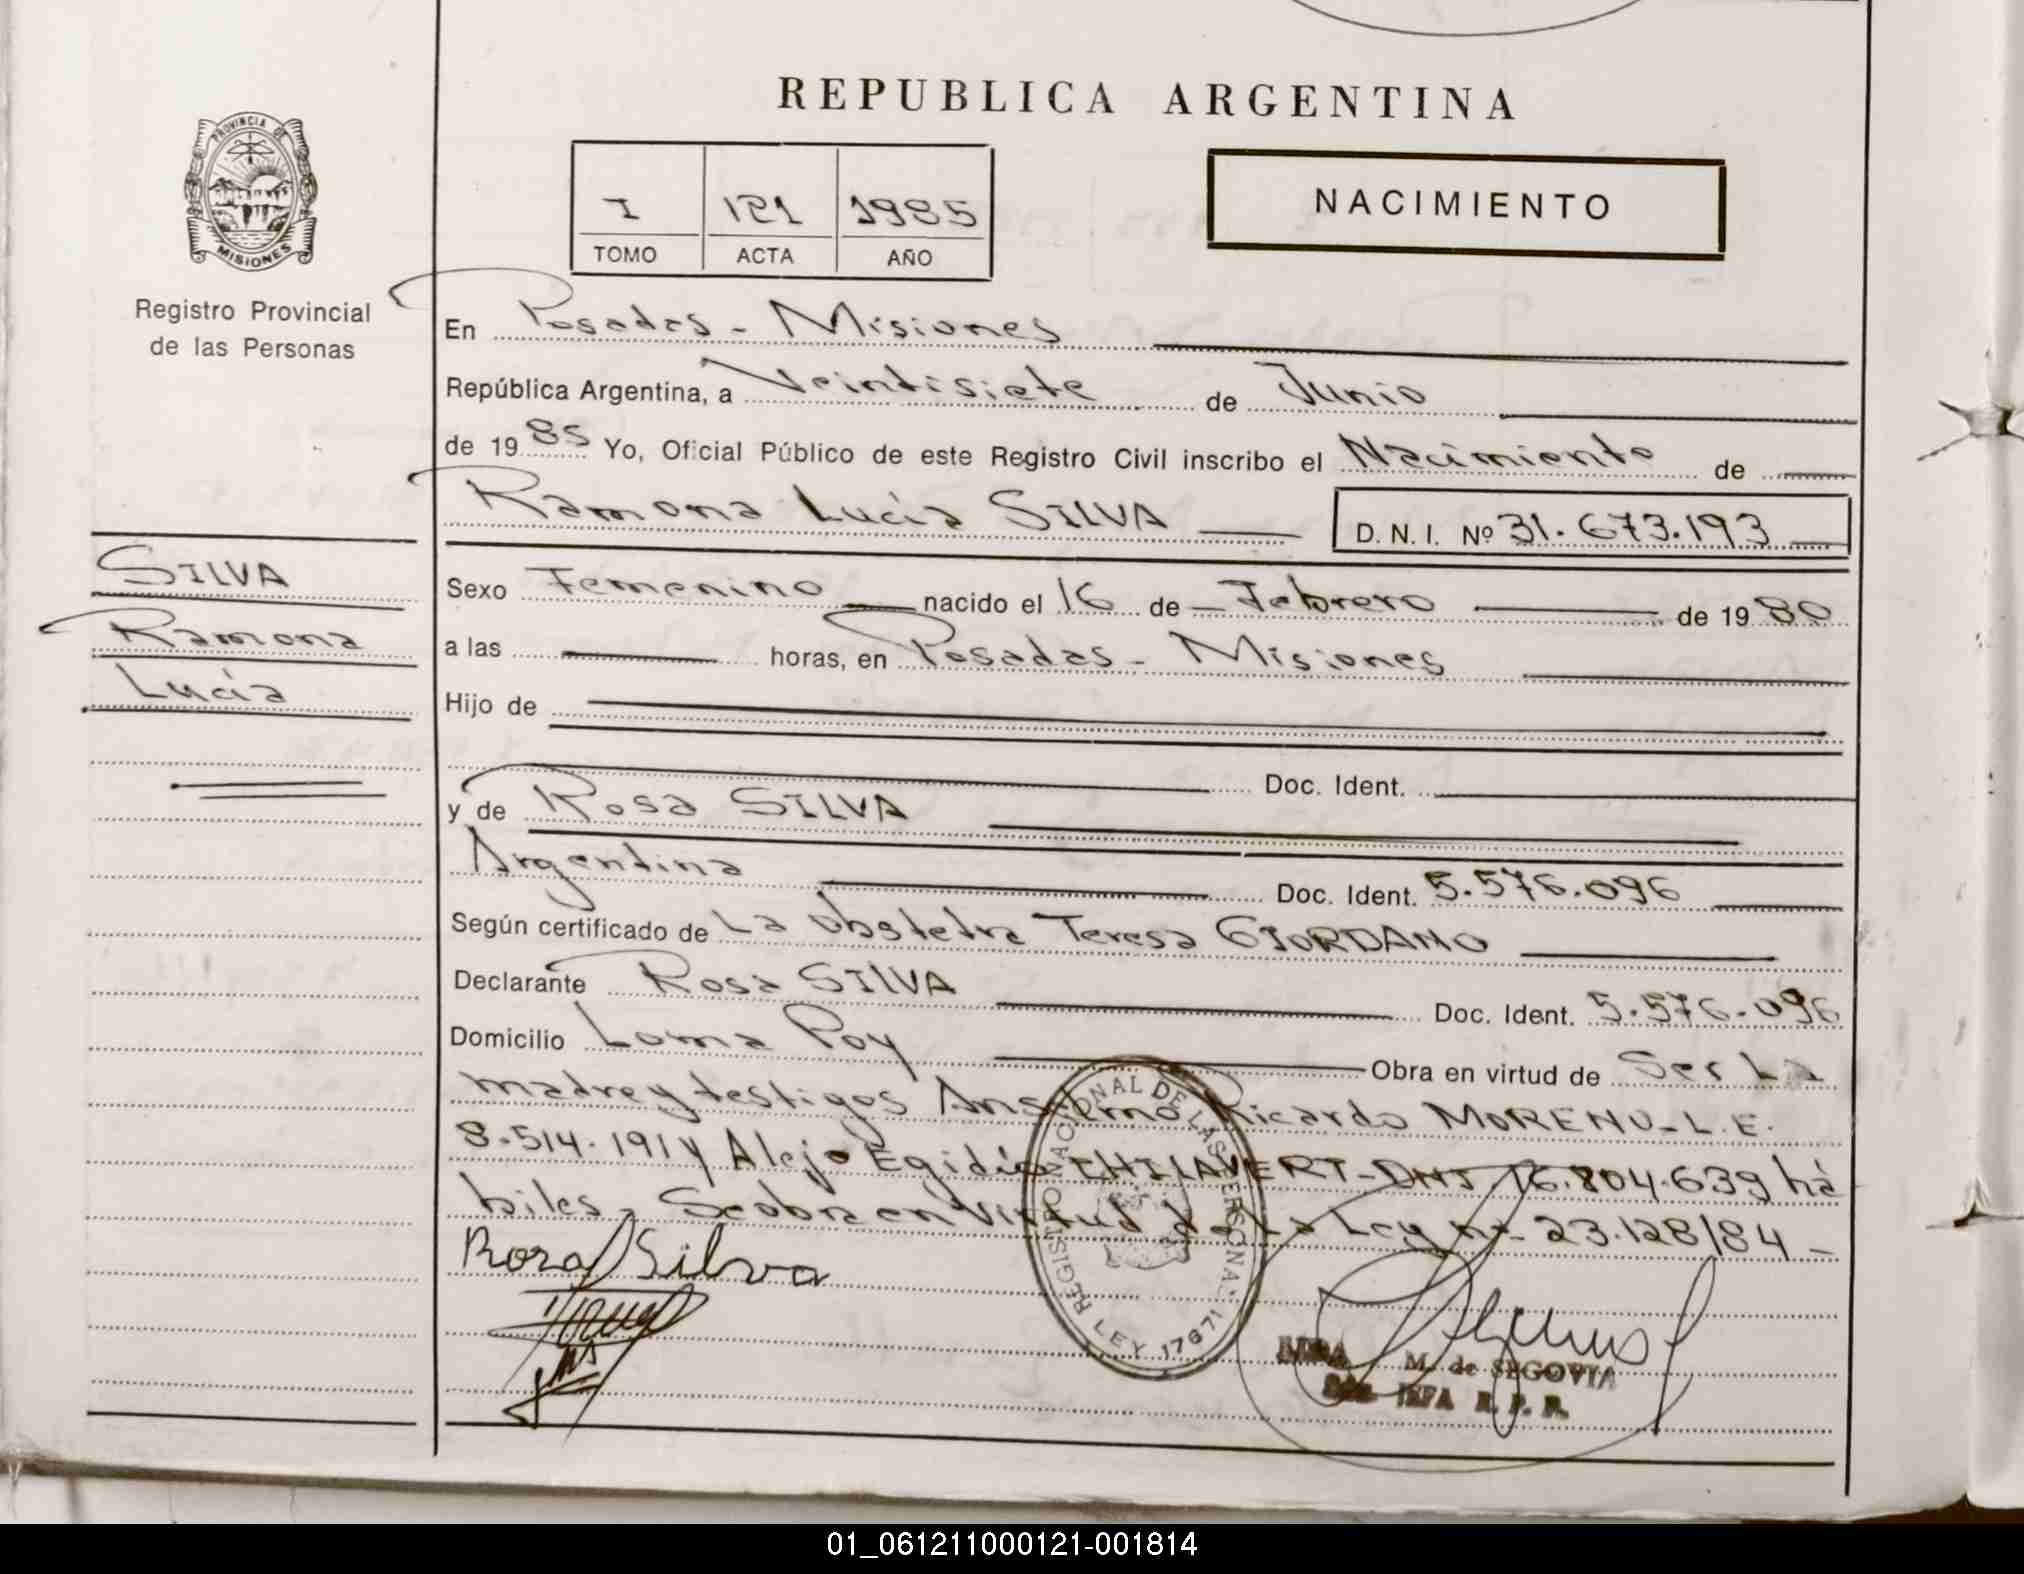 REPUBLICA ARGENTINA
PROVINCIA DE
MISIONES
Registro Provincial
de las Personas
I 121 1985
TOMO ACTA AÑO
NACIMIENTO
En Posadas - Misiones
República Argentina, a Veintisiete de Junio
de 1985 Yo, Oficial Público de este Registro Civil inscribo el Nacimiento de
Ramona Lucía SILVA D. N. I. Nº 31.673.193
SILVA
Ramona
Lucía
Sexo Femenino nacido el 16 de Febrero de 1980
a las horas, en Posadas - Misiones
Hijo de
Doc. Ident.
y de Rosa SILVA
Argentina Doc. Ident. 5.576.096
Según certificado de La obstetra Teresa GIORDANO
Declarante Rosa SILVA Doc. Ident. 5.576.096
Domicilio Loma Poy Obra en virtud de Ser La
madre y testigos Anselmo Ricardo MORENO - L.E.
8.514.191 y Alejo Egidio CHILAVERT - DNI 16.804.639 há
biles - Se obra en Virtud de La Ley nº 23.128/84 -
Rosa Silva
REGISTRO NACIONAL DE LAS PERSONAS
LEY 17671
M. de SEGOVIA
JEFA R. P. P.
01_061211000121-001814